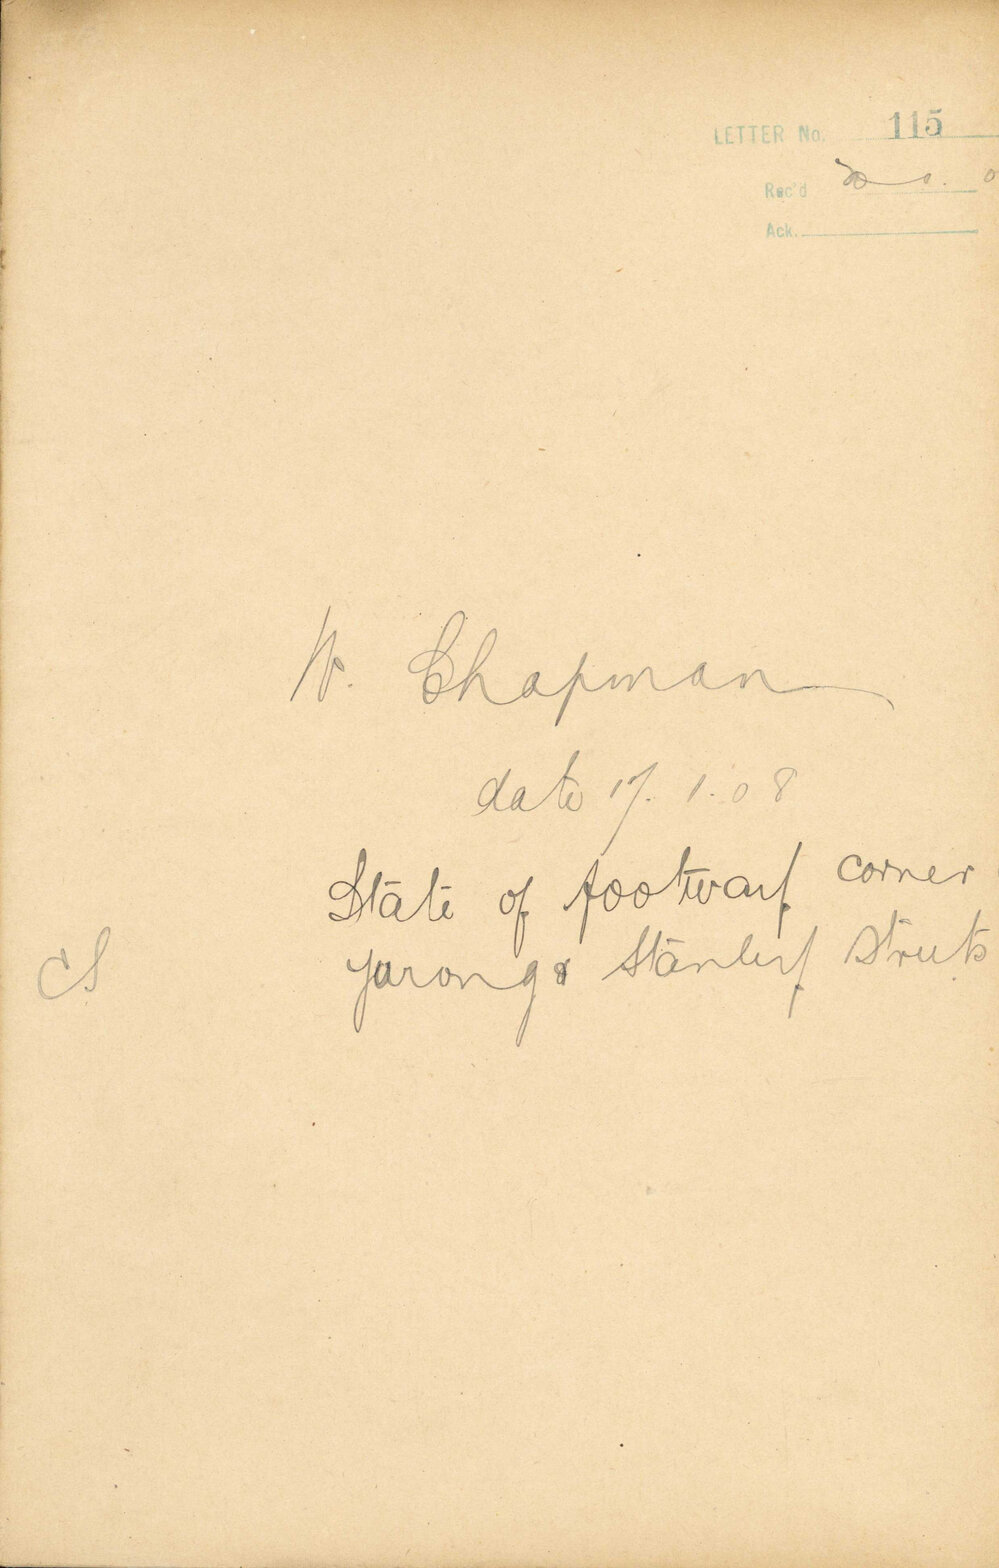 LETTER No. 115
Rec'd 20 . 1 . 0
Ack.
W. Chapman
date 17. 1. 08
State of footway corner
Yarong & Stanley Streets
CS